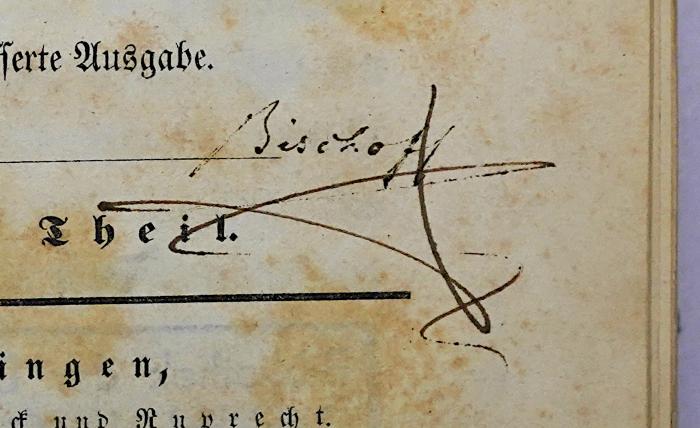 ſſerte Ausgabe.
Bischoff
Theil.
ingen,
ck und Ruprecht.